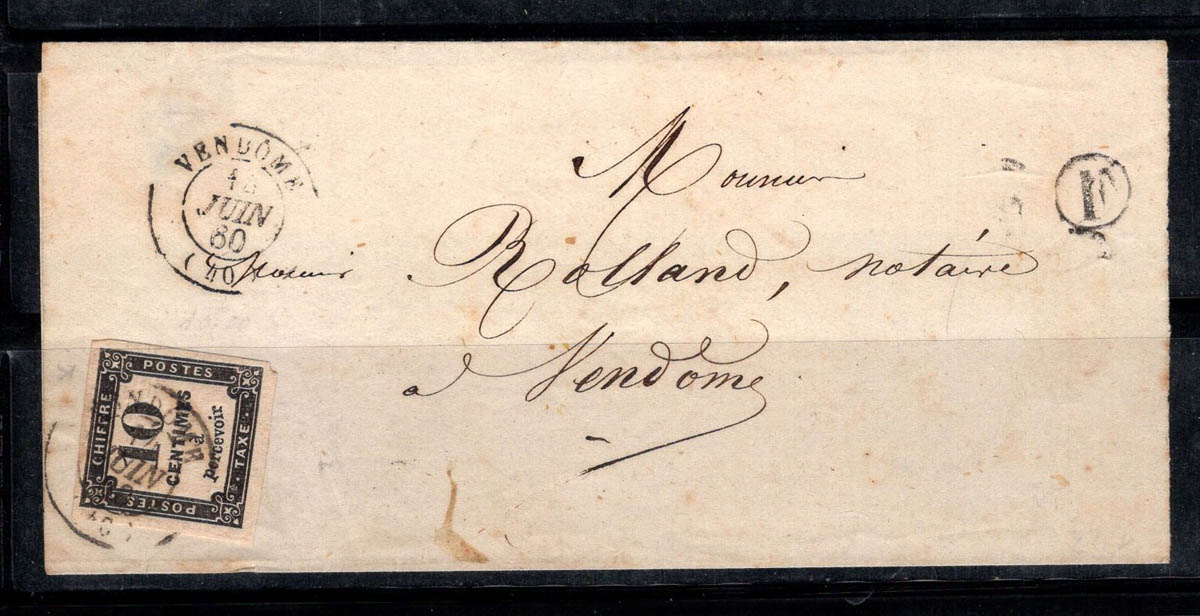 VENDÔME
JUIN
60
(40)
Monsieur
Rolland, notaire
à Vendôme
F
POSTES
CHIFFRE
TAXE
10
CENTIMES
à
percevoir
POSTES
JUIN